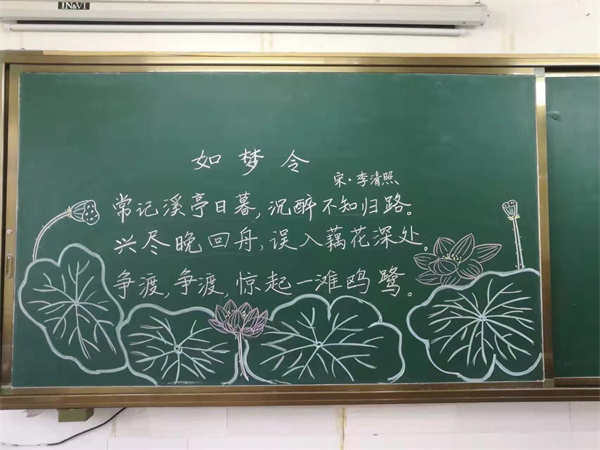 如梦令
宋·李清照
常记溪亭日暮,沉醉不知归路。
兴尽晚回舟,误入藕花深处。
争渡,争渡,惊起一滩鸥鹭。